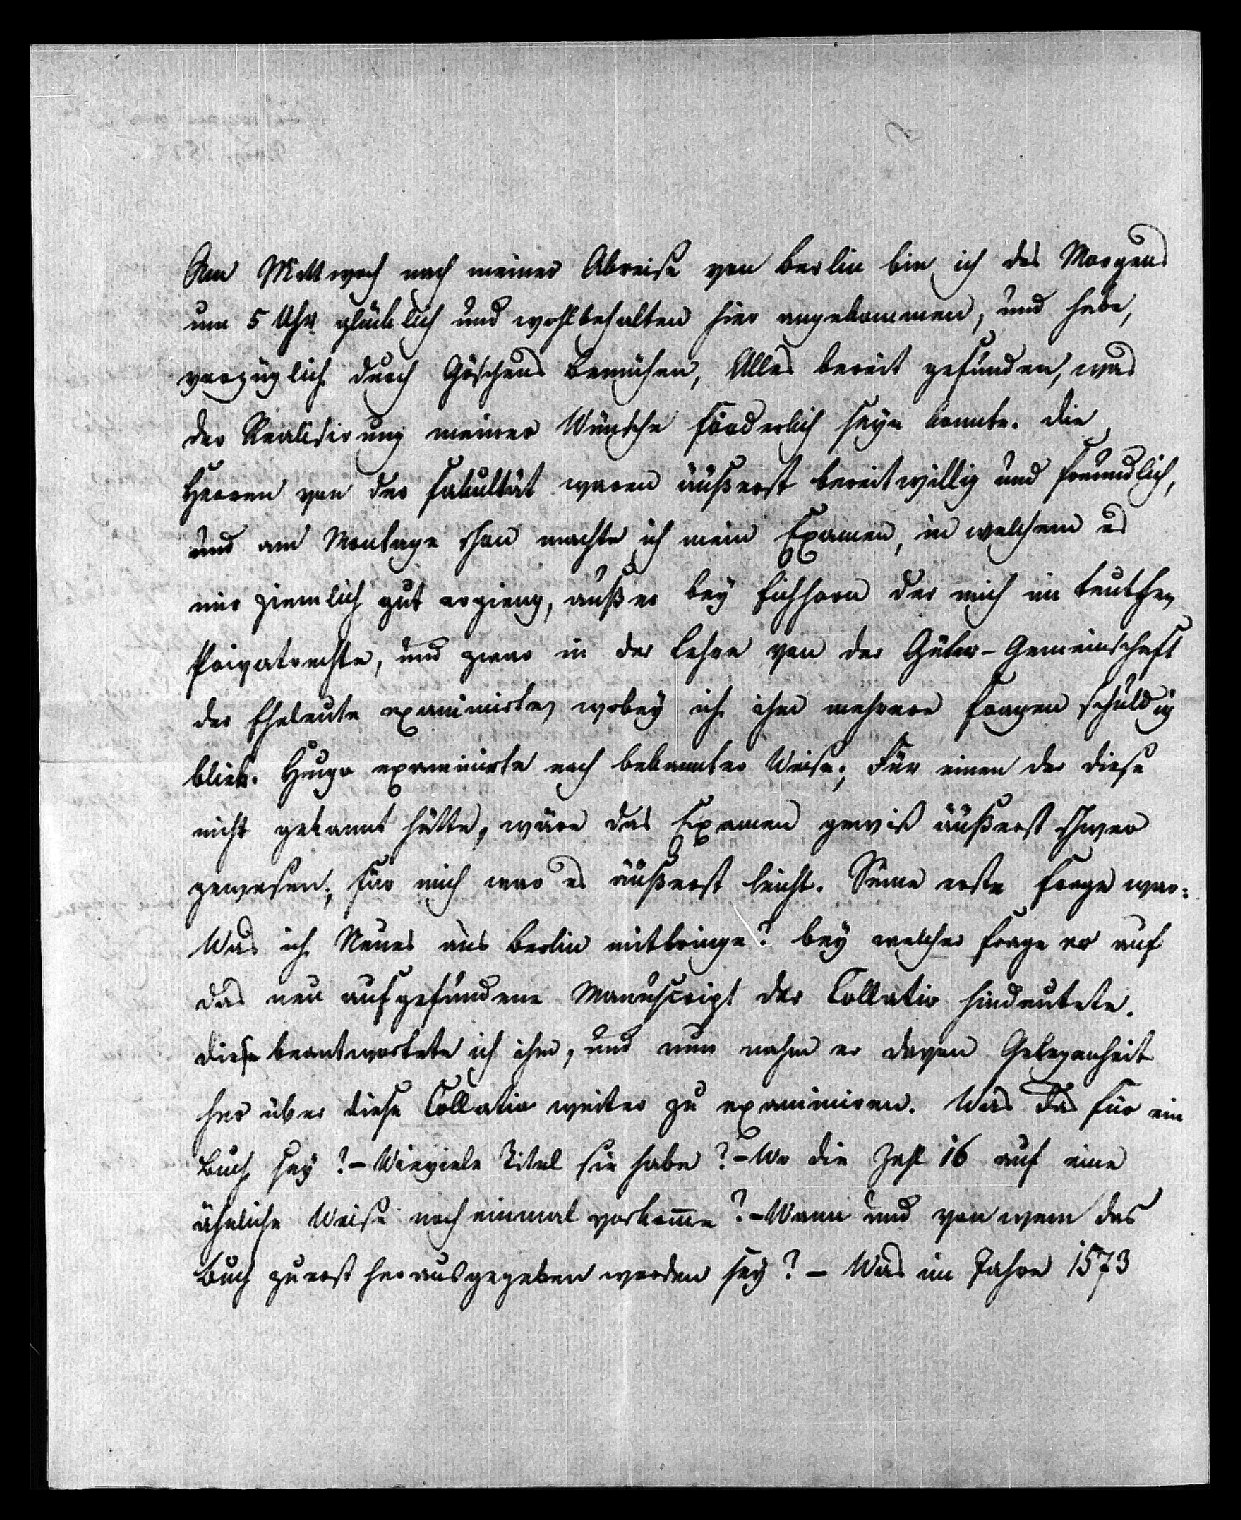 Am Mittwoch nach meiner Abreise von Berlin bin ich des Morgens
um 5 Uhr glücklich und wohlbehalten hier angekommen, und habe,
vorzüglich durch Göschens Bemühen, Alles bereit gefunden, was
der Realisirung meiner Wünsche förderlich seyn konnte. Die
Herren von der Fakultät waren äußerst bereitwillig und freundlich,
und am Montage schon machte ich mein Examen, in welchem es
mir ziemlich gut ergieng, außer bey Eichhorn der mich im teutschen
Privatrechte, und zwar in der Lehre von der Güter-Gemeinschaft
der Eheleute examinirte, wobey ich ihm mehrere Fragen schuldig
blieb. Hugo examinirte nach bekannter Weise; Für einen der diese
nicht gekannt hätte, wäre das Examen gewiß äußerst schwer
gewesen; für mich war es äußerst leicht. Seine erste Frage war:
Was ich Neues aus Berlin mitbringe? bey welcher Frage er auf
das neu aufgefundene Manuscript der Collatio hindeutete.
Diese beantwortete ich ihm, und nun nahm er davon Gelegenheit
her über diese Collatio weiter zu examiniren. Was das für ein
Buch sey? – Wieviele Titel sie habe? – Wo die Zahl 16 auf eine
ähnliche Weise noch einmal vorkom̄e? – Wann und von wem das
Buch zuerst herausgegeben worden sey? – Was im Jahre 1573